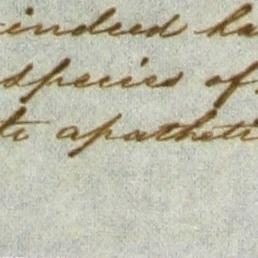 indeed ha
species of
te apatheti